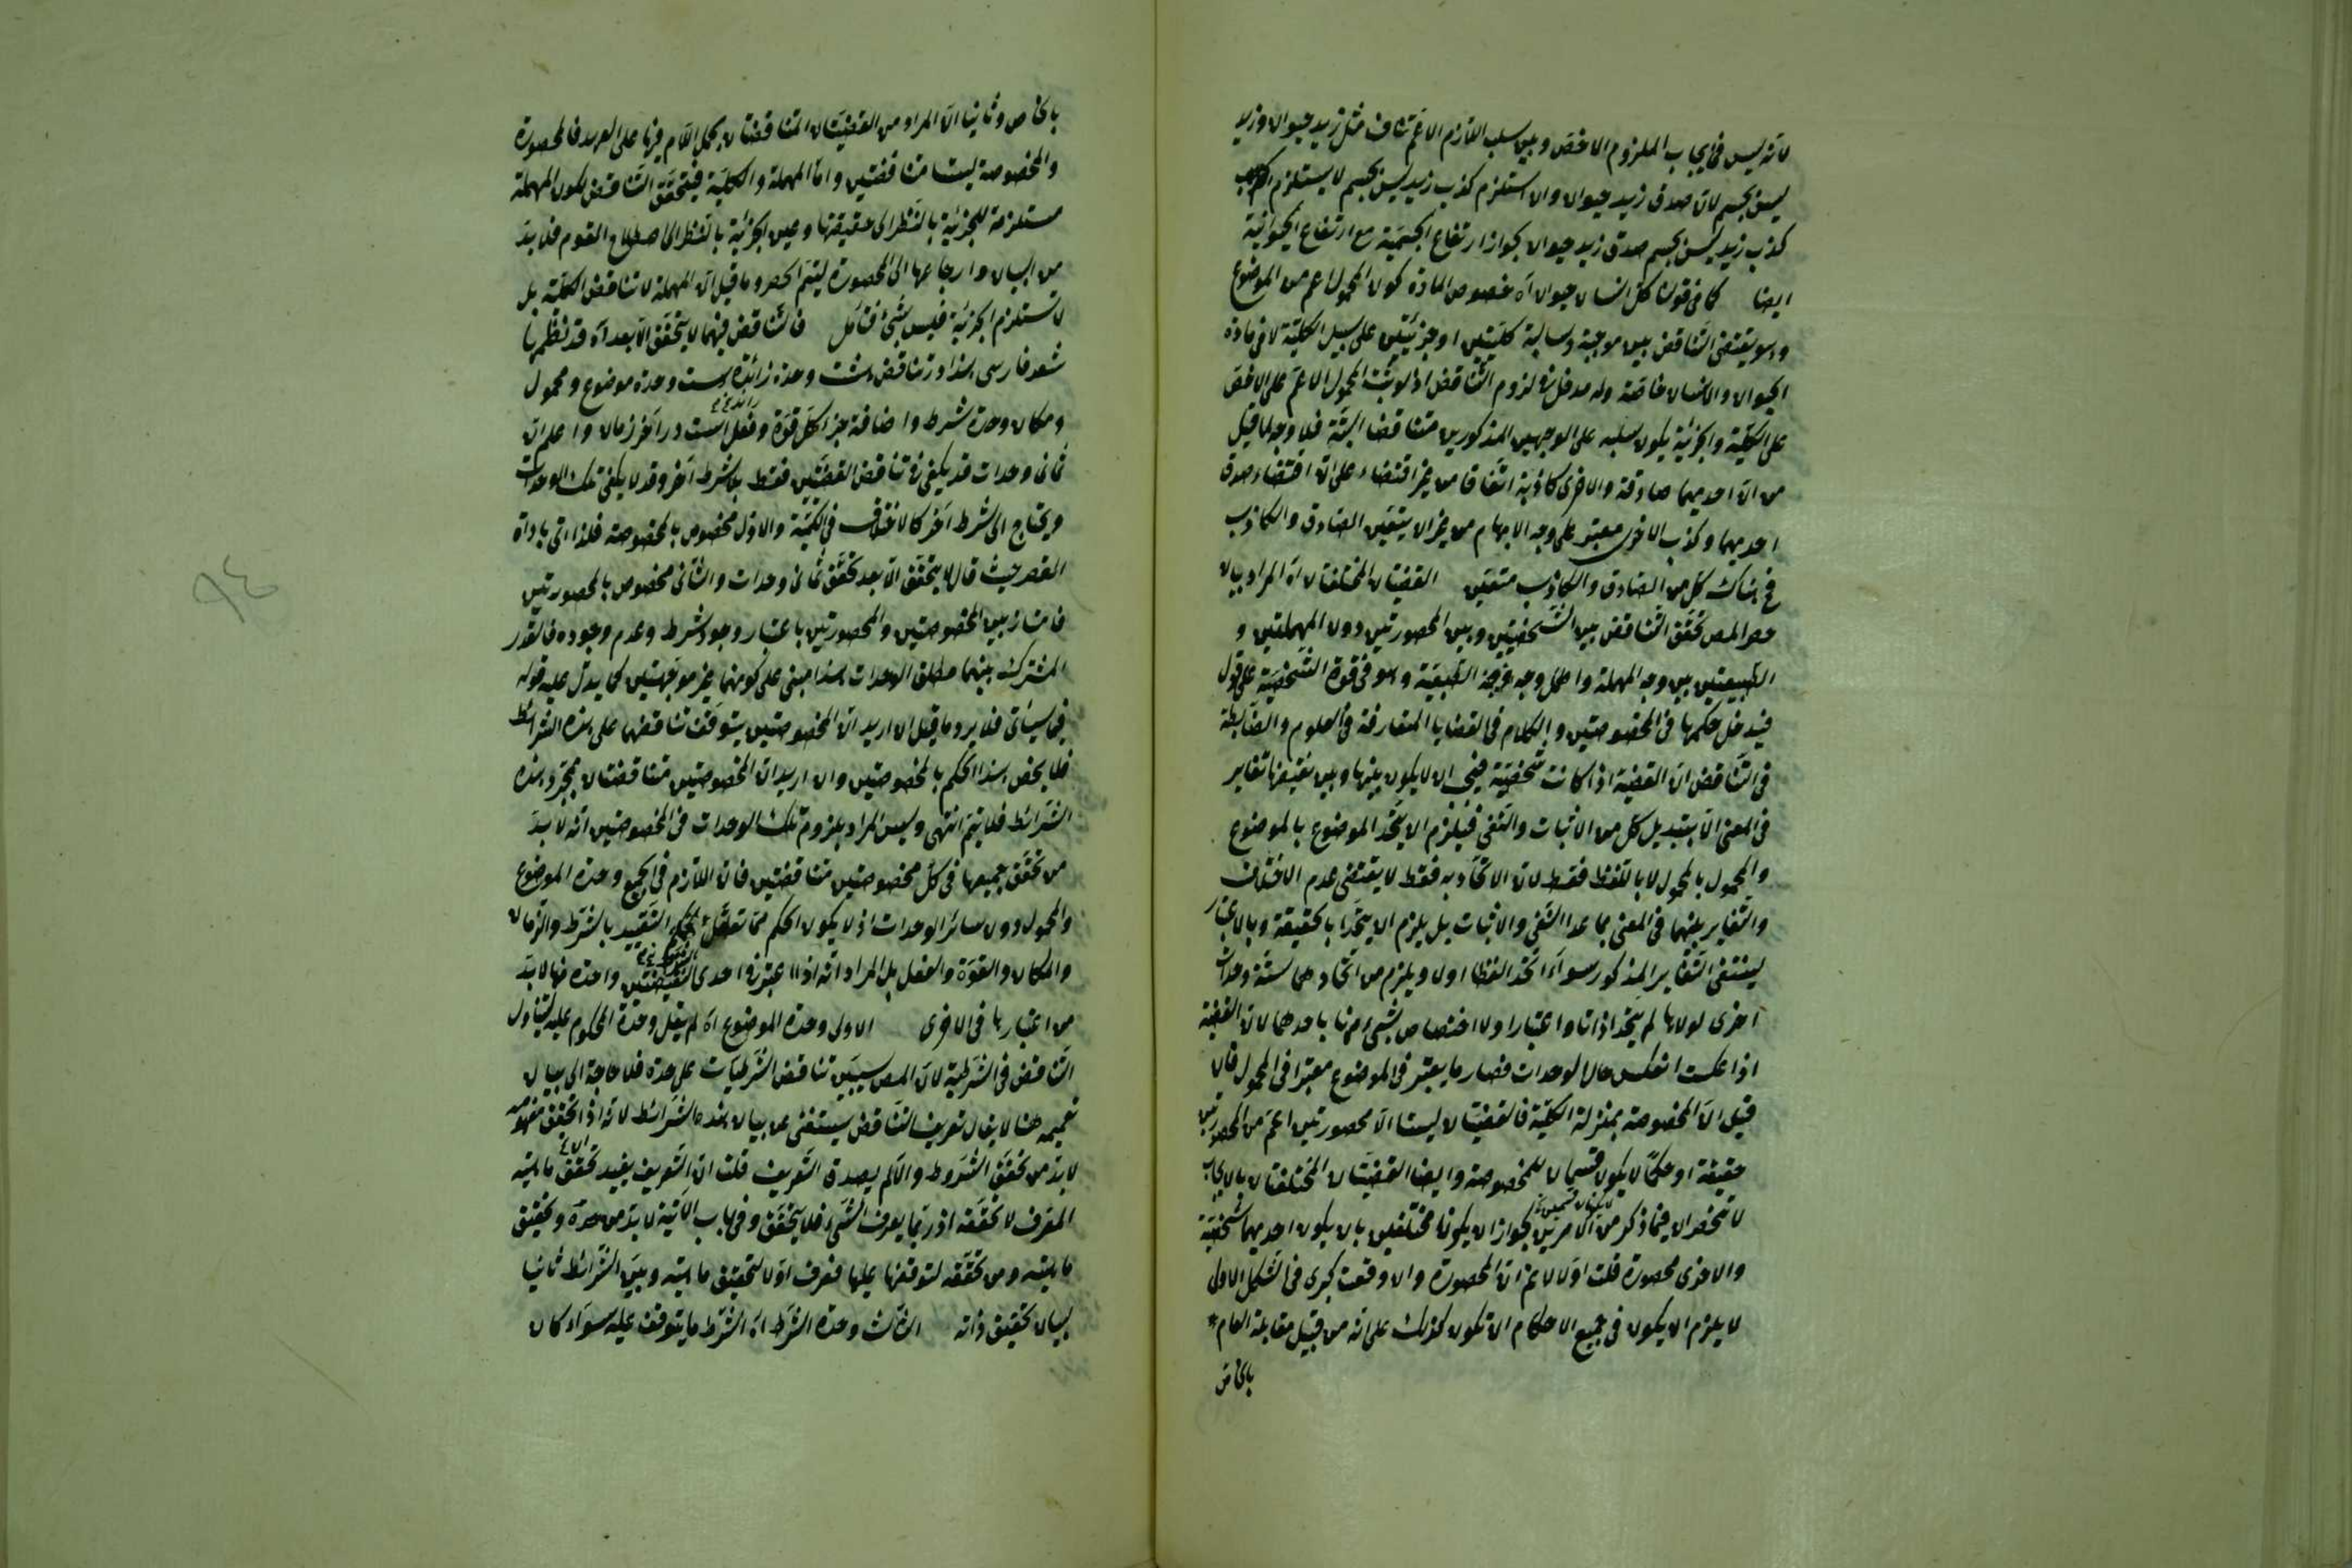 لانه ليس في ايجاب الملزوم الاخص وبين سلب اللازم الاعم تناف مثل زيد حيوان وزيد
ليس بجسم لان صدق زيد حيوان وان استلزم كذب زيد ليس بجسم لا يستلزم
كذب زيد ليس بجسم صدق زيد حيوان لجواز ارتفاع الجسمية مع ارتفاع الحيوانية
ايضا كما في قولنا كل انسان حيوان اه خصوص المادة كون المحمول اعم من الموضوع
وهو يقتضي التناقض بين موجبة وسالبة كليتين او جزئيتين على سبيل الكلية لا في مادة
الحيوان والانسان خاصة وله مدخل في لزوم التناقض اذ لو ثبت المحمول الاعم على الاخص
على الكلية والجزئية يكون سلبه على الوجهين المذكورين متناقضا البتة فلا وجه لما قيل
من ان احديهما صادقة والاخرى كاذبة اتفاقا من غير اقتضاء على ان اقتضاء صدق
احديهما وكذب الاخرى معتبر على وجه الابهام من غير ان يتعين الصادق والكاذب
فح هناك كل من الصادق والكاذب متعين القضيتان المختلفتان اه المراد بيان
حصر المص تحقق التناقض بين الشخصيتين وبين المحصورتين دون المهملتين و
الطبيعتين بين وجه المهملة واهمل وجه خروج الطبيعية وهو في قوة الشخصية على قول
فيدخل حكمها في المخصوصتين والكلام في القضايا المتعارفة في العلوم والضابطة
في التناقض ان القضية اذا كانت شخصية ينبغي ان لا يكون بينها وبين نقيضها تغاير
في المعنى الا بتبديل كل من الاثبات والنفي فيلزم ان يتحد الموضوع بالموضوع
والمحمول بالمحمول لا باللفظ فقط لان الاتحاد به فقط لا يقتضي عدم الاختلاف
والتغاير بينهما في المعنى بما عدا النفي والاثبات بل يلزم ان يتحدا بالحقيقة وبالاعتبار
لينتفي التغاير المذكور سواء اتحد لفظا اولا ويلزم من اتحادهما ستة وحدات
اخرى لولاها لم يتحد اذاتا واعتبارا ولا اختصاص لشيء منها باحدهما لان القضية
اذا عكست انعكس حال الوحدات فصار ما يعتبر في الموضوع معتبرا في المحمول فان
قيل ان المخصوصة بمنزلة الكلية فالقضيتان ليستا الا محصورتين اعم من المحصورتين
حقيقة او حكما لا يكون قسيمان للمخصوصة وايضا القضيتان المختلفتان بالايجاب
لا تنحصران فيما ذكر من الامرين لجواز ان يكونا مختلفين بان يكون احديهما شخصية
والاخرى محصورة قلت اولا لا نم ان المحصورة وان وقعت كبرى في الشكل الاول
لا يلزم ان يكون في جميع الاحكام ان تكون كذلك على انه من قبيل مقابلة العام
بالخاص
بالخاص وثانيا ان المراد من القضيتان المتناقضتان بحمل اللام فيها على العهد فالمحصورة
والمخصوصة ليستا متناقضتين واما المهملة والكلية فيتحقق التناقض لكون المهملة
مستلزمة للجزئية بالنظر الى حقيقتها وعين الجزئية بالنظر الى اصطلاح القوم فلا بد
من البيان وارجاعها الى المحصورة ليتم الحصر وما قيل ان المهملة لا تناقض الكلية بل
لا تستلزم الجزئية فليس بشيء فتأمل فالتناقض فيهما لا يتحقق الا بعد اه قد نظم بها
شعر فارسي در تناقض هشت وحدة زائدة است وحدة موضوع ومحمول
ومكان وحدة شرط واضافة جزء كل قوة وفعل است در آخر زمان واعلم ان
ثماني وحدات قد يكفي في تناقض القضيتين فقط بلا شرط آخر وقد لا يكفي تلك الوحدات
ويحتاج الى شرط آخر كالاختلاف في الكمية والاول مخصوص بالمخصوصة فلذا اتى باداة
القصر حيث قال لا يتحقق الا بعد تحقق ثماني وحدات والثاني مخصوص بالمحصورتين
فامتاز بين المخصوصتين والمحصورتين باعتبار وجود شرط وعدم وجوده فالقدر
المشترك بينهما مطلق الوحدات هذا مبني على كونهما غير موجهتين كما يدل عليه قوله
فيما سيأتي فلا يرد ما قيل ان اريد ان المخصوصتين يتوقف تناقضهما على هذه الشرائط
فلا يخص هذا الحكم بالمخصوصتين وان اريد ان المخصوصتين متناقضتان بمجرد هذه
الشرائط فلا يتم انتهى وليس المراد بلزوم تلك الوحدات في المخصوصتين انه لا بد
من تحقق جميعها في كل مخصوصتين متناقضتين فان اللازم في الجميع وحدة الموضوع
والمحمول دون سائر الوحدات اذ لا يكون الحكم مما التقييد بالشرط والزمان
والمكان والقوة والفعل بل المراد انه اذا اعتبر في احدى النقيضتين واحدة منها لا بد
من اعتبارها في الاخرى الاولى وحدة الموضوع اه لم يقل وحدة المحكوم عليه ليتناول
التناقض في الشرطية لان المص سيبين تناقض الشرطيات على حدة فلا حاجة الى بيان
تعميمه هنا لا يقال تعريف التناقض سيستغنى عن بيان هذه الشرائط لانه اذا تحقق مفهومه
لا بد من تحقق الشروط والا لم يصدق التعريف قلت ان التعريف يفيد تحقق ماهية
المعرف لا تحققه اذ ربما يعرف الشيء فلا يتحقق وفي باب الآتية لا بد من حده وتحقيق
ماهيته ومن تحققه لتوقفها عليها فعرف اولا لتحقيق ماهيته وبين الشرائط ثانيا
لبيان تحقيق ذاته الثالث وحدة الشرط اه الشرط ما يتوقف عليه سواء كان
٩٤